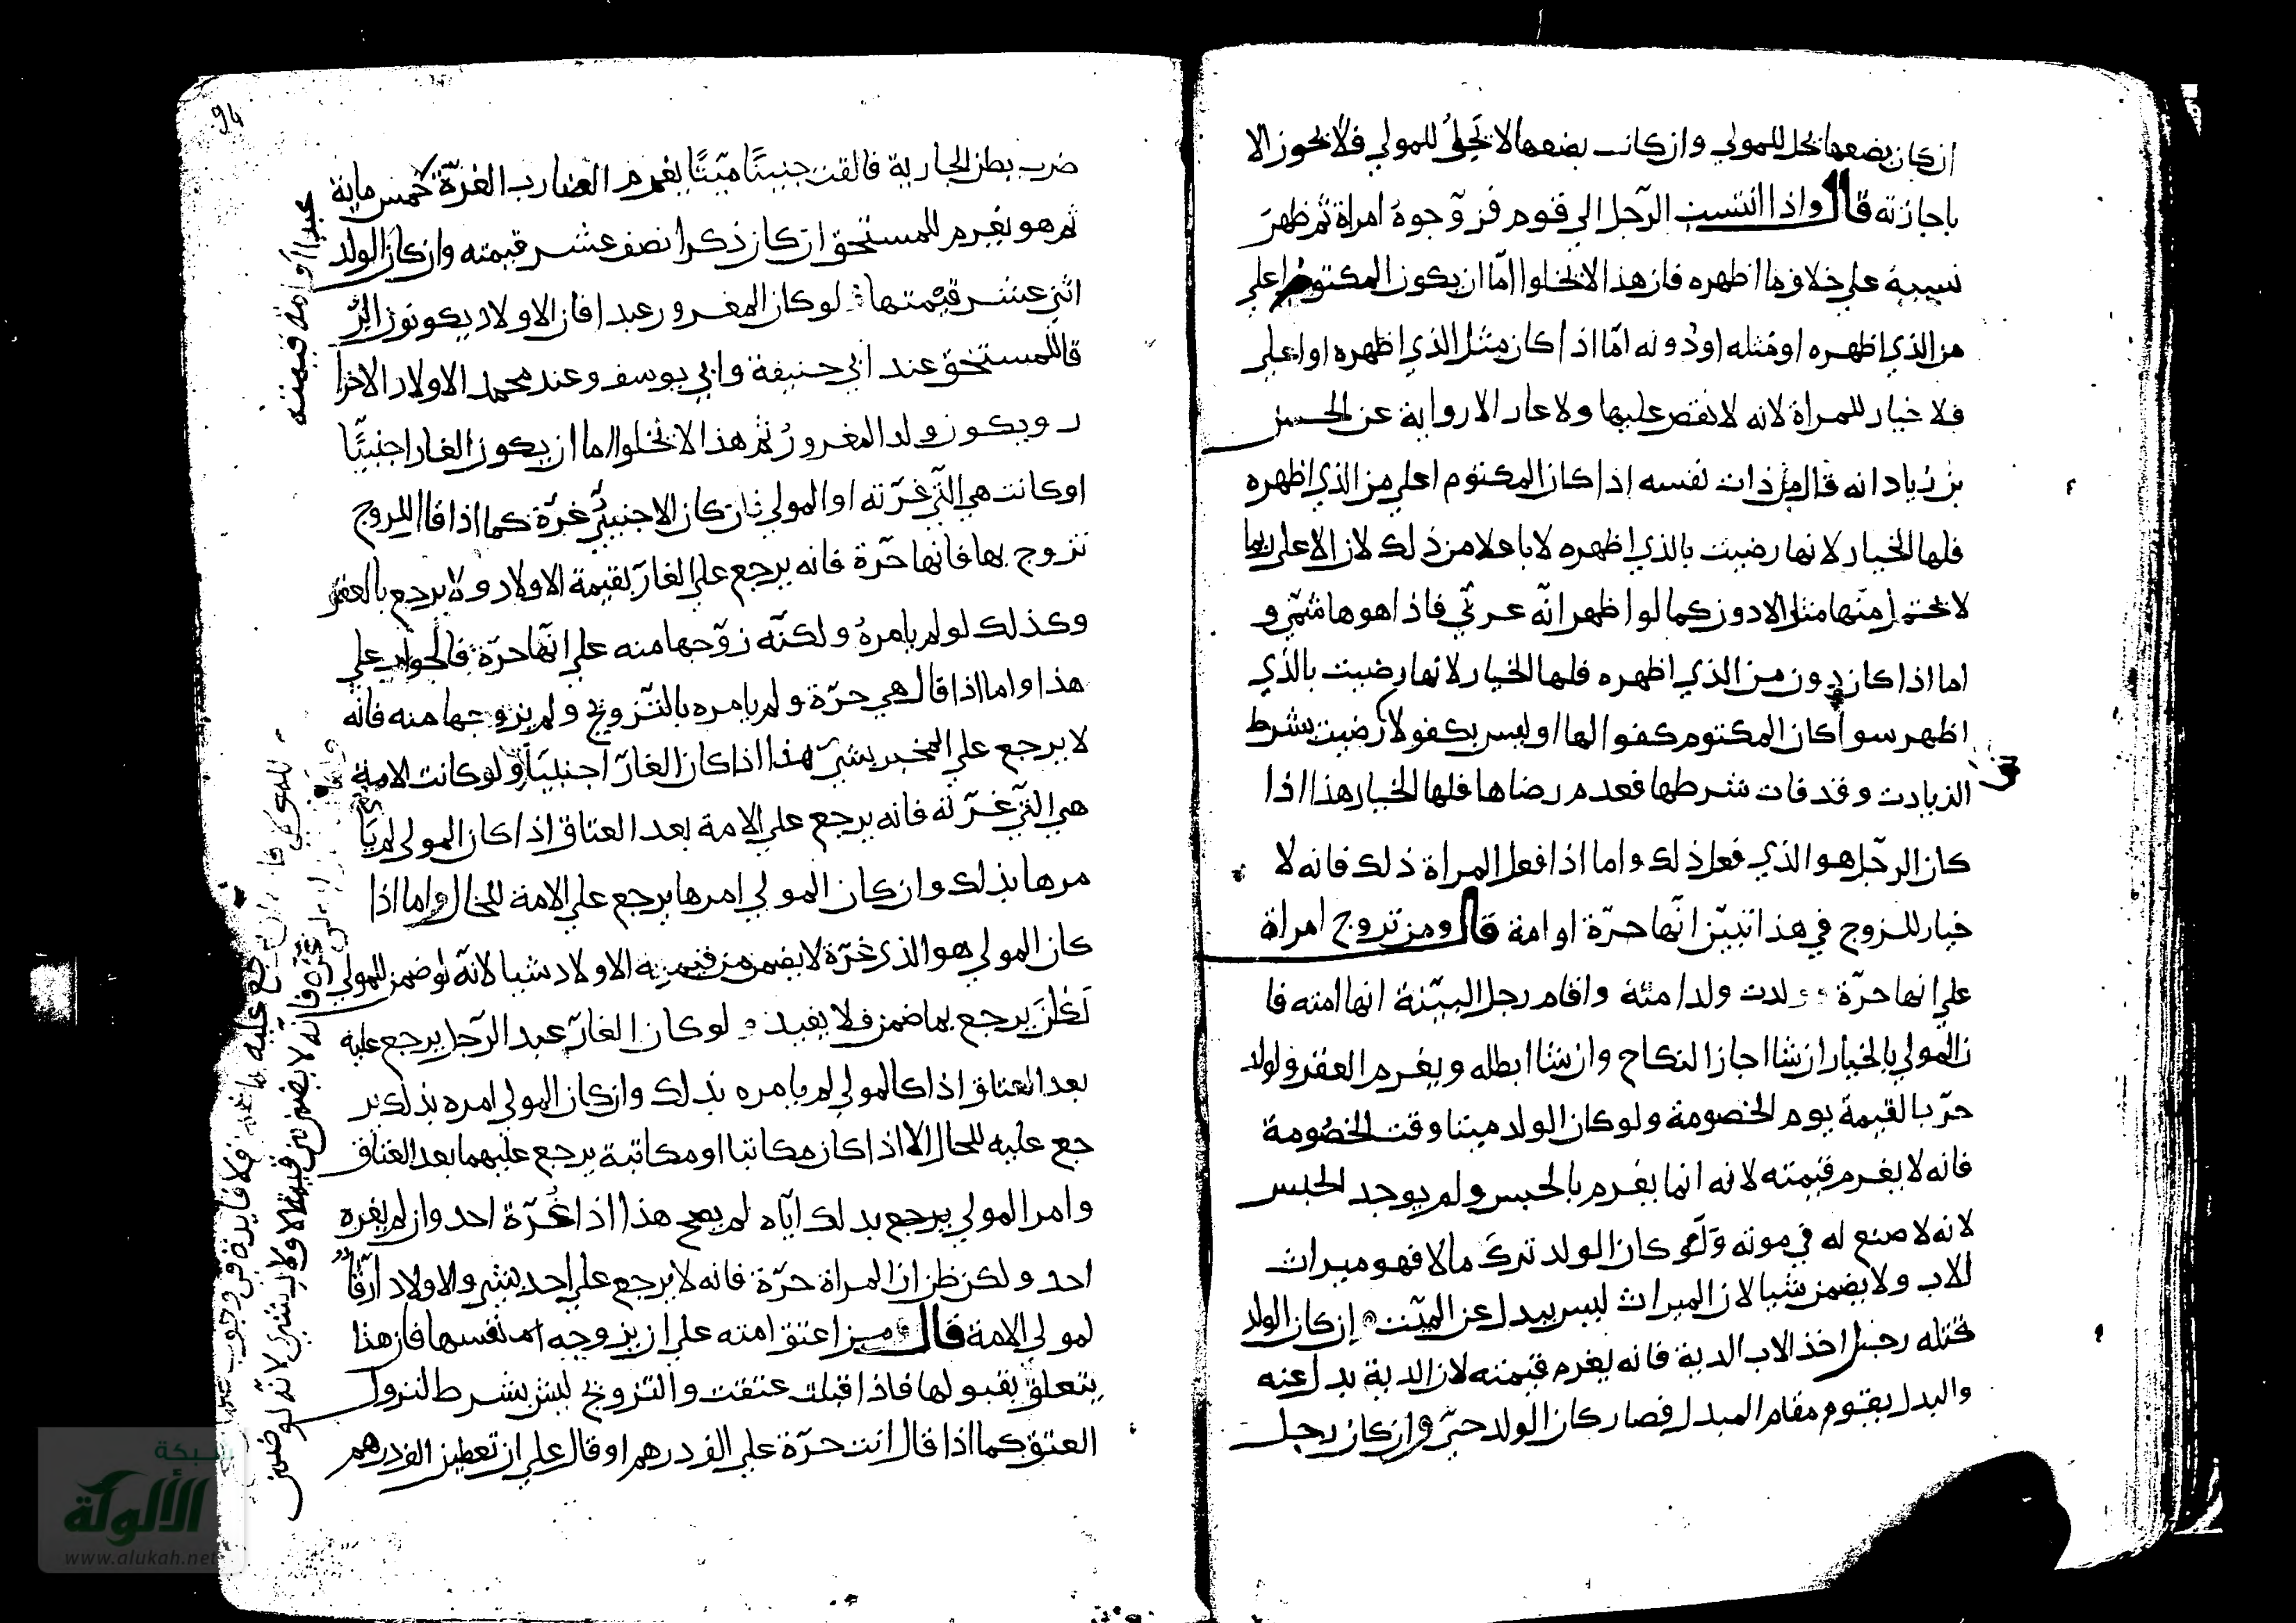 ان كان بضعها يحل للمولي وان كانت بضعها لا يَحِلُّ للمولي فلا يجوز الا
باجازته قال واذا انتسب الرّجل الي قوم فزوّجوهُ امراة ثم ظهرَ
نسبهُ علي خلاف ما اظهره فان هذا لا يخلوا امّا ان يكون المكتوم اعلي
من الذي اظهره او مثله او دُونه امّا اذا كان مثل الذي اظهره او اعلي
فلا خيار للمراة لانه لا نقص عليها ولا عار الا رواية عن الحسن
بن زياد انه قال من ذات نفسه اذا كان المكتوم اعلي من الذي اظهره
فلها الخيار لانها رضيت بالذي اظهره لا باعلا من ذلك لان الاعلي ربما
لا يحتمل منها مثل الادون كما لو اظهر انّه عربّي فاذا هو هاشمّي و
اما اذا كان دون من الذي اظهره فلها الخيار لانها رضيت بالذي
اظهر سوا كان المكتوم كفوا لها او ليس بكفو لا رضيت بشرط
الزيادت وقد فات شرطها فعدم رضاها فلها الخيار هذا اذا
كان الرجّل هو الذي فعل ذلك واما اذا فعل المراة ذلك فانه لا
خيار للزوج في هذا تبيّن انّها حرّة او امة قال ومن تزوج امراة
علي انها حرّة ولدت ولدا منه واقام رجل البيّنة انها امته فا
ن المولي بالخيار ان شا اجاز النكاح وان شا ابطله ويغرم العقر ولولد
حرّ بالقيمة يوم الخصومة ولو كان الولد ميتا وقت الخصُومة
فانه لا يغرم قيمته لانه انما يغرم بالحبس ولم يوجد الحبس
لانه لا صنع له في موته وَلَو كان الولد تركَ مالا فهو ميراث
للاب ولا يضمن شيا لان الميراث ليس ببدل عن الميّت إن كان الولد
قتله رجل اخذ الاب الدية فانه يغرم قيمته لان الدية بدل عنه
والبدل يقوم مقام المبدل فصار كان الولد حيّ وان كان رجل
94
ضرب بطن الجارية فالقت جنينًا ميّتًا يغرم الضارب الغرّة خمس ماية
ثم هو يغرم للمستحق ان كان ذكرا نصف عشر قيمته وان كان الولد
انثي عشر قيمتها لو كان المغرور عبدا فان الاولاد يكونون
قا للمستحق عند ابي حنيفة وابي يوسف وعند محمد الاولاد الاحرا
ر ويكون ولد المغرورُ ثم هذا لا يخلوا اما ان يكون الغار اجنبيًّا
او كانت هي الّتي غرّته او المولي فان كان الاجنبيُّ غرّة كما اذا قال للزوج
تزوج بها فانها حرّة فانه يرجع علي الغارّ بقيمة الاولاد ولا يرجع بالعقر
وكذلك لو لم يامرهُ ولكنّه زوّجها منه علي انّها حرّة فالجواب علي
هذا واما اذا قال هي حرّة ولم يامره بالتّزويج ولم يزوجها منه فانّه
لا يرجع علي المخبر بشيّ هذا اذا كان الغارّ اجنبيّاً ولو كانت الامة
هي الّتي غرّته فانه يرجع علي الامة بعد العتاق اذا كان المولي لم يا
مرها بذلك وان كان المولي امرها يرجع علي الامة للحال واما اذا
كان المولي هو الذي غرّة لا يضمن من قيمة الاولاد شيا لانّه لو ضمن للمولي
لكان يرجع بما ضمن فلا يفيد لو كان الغارّ عبد الرّجل يرجع عليه
بعد العتاق اذا كا المولي لم يامره بذلك وان كان المولي امره بذلك ير
جع عليه للحال الا اذا كان مكاتبا او مكاتبة يرجع عليهما بعد العتاق
وامر المولي بذلك اياه لم يصح هذا اذا غرّة احد وان لم يغره
احد ولكن ظن ان المراة حرّة فانه لا يرجع علي احد بشي والاولاد ارقّاً
لمولي الامة قال من اعتق امته علي ان يزوجه نفسها فان هذا
يتعلّق بقبولها فاذا قبلت عتقت والتزويج ليس بشرط لنزول
العتق كما اذا قال انت حرّة علي الف درهم او قال علي ان تعطين الف درهم
عبدا او امة قيمته
غرّه فانّه لا يضمن من قيمة الاولاد شي لانّه لو ضمن
يرجع عليه فلا فايدة في وجوب
شبكة
الألوكة
www.alukah.net